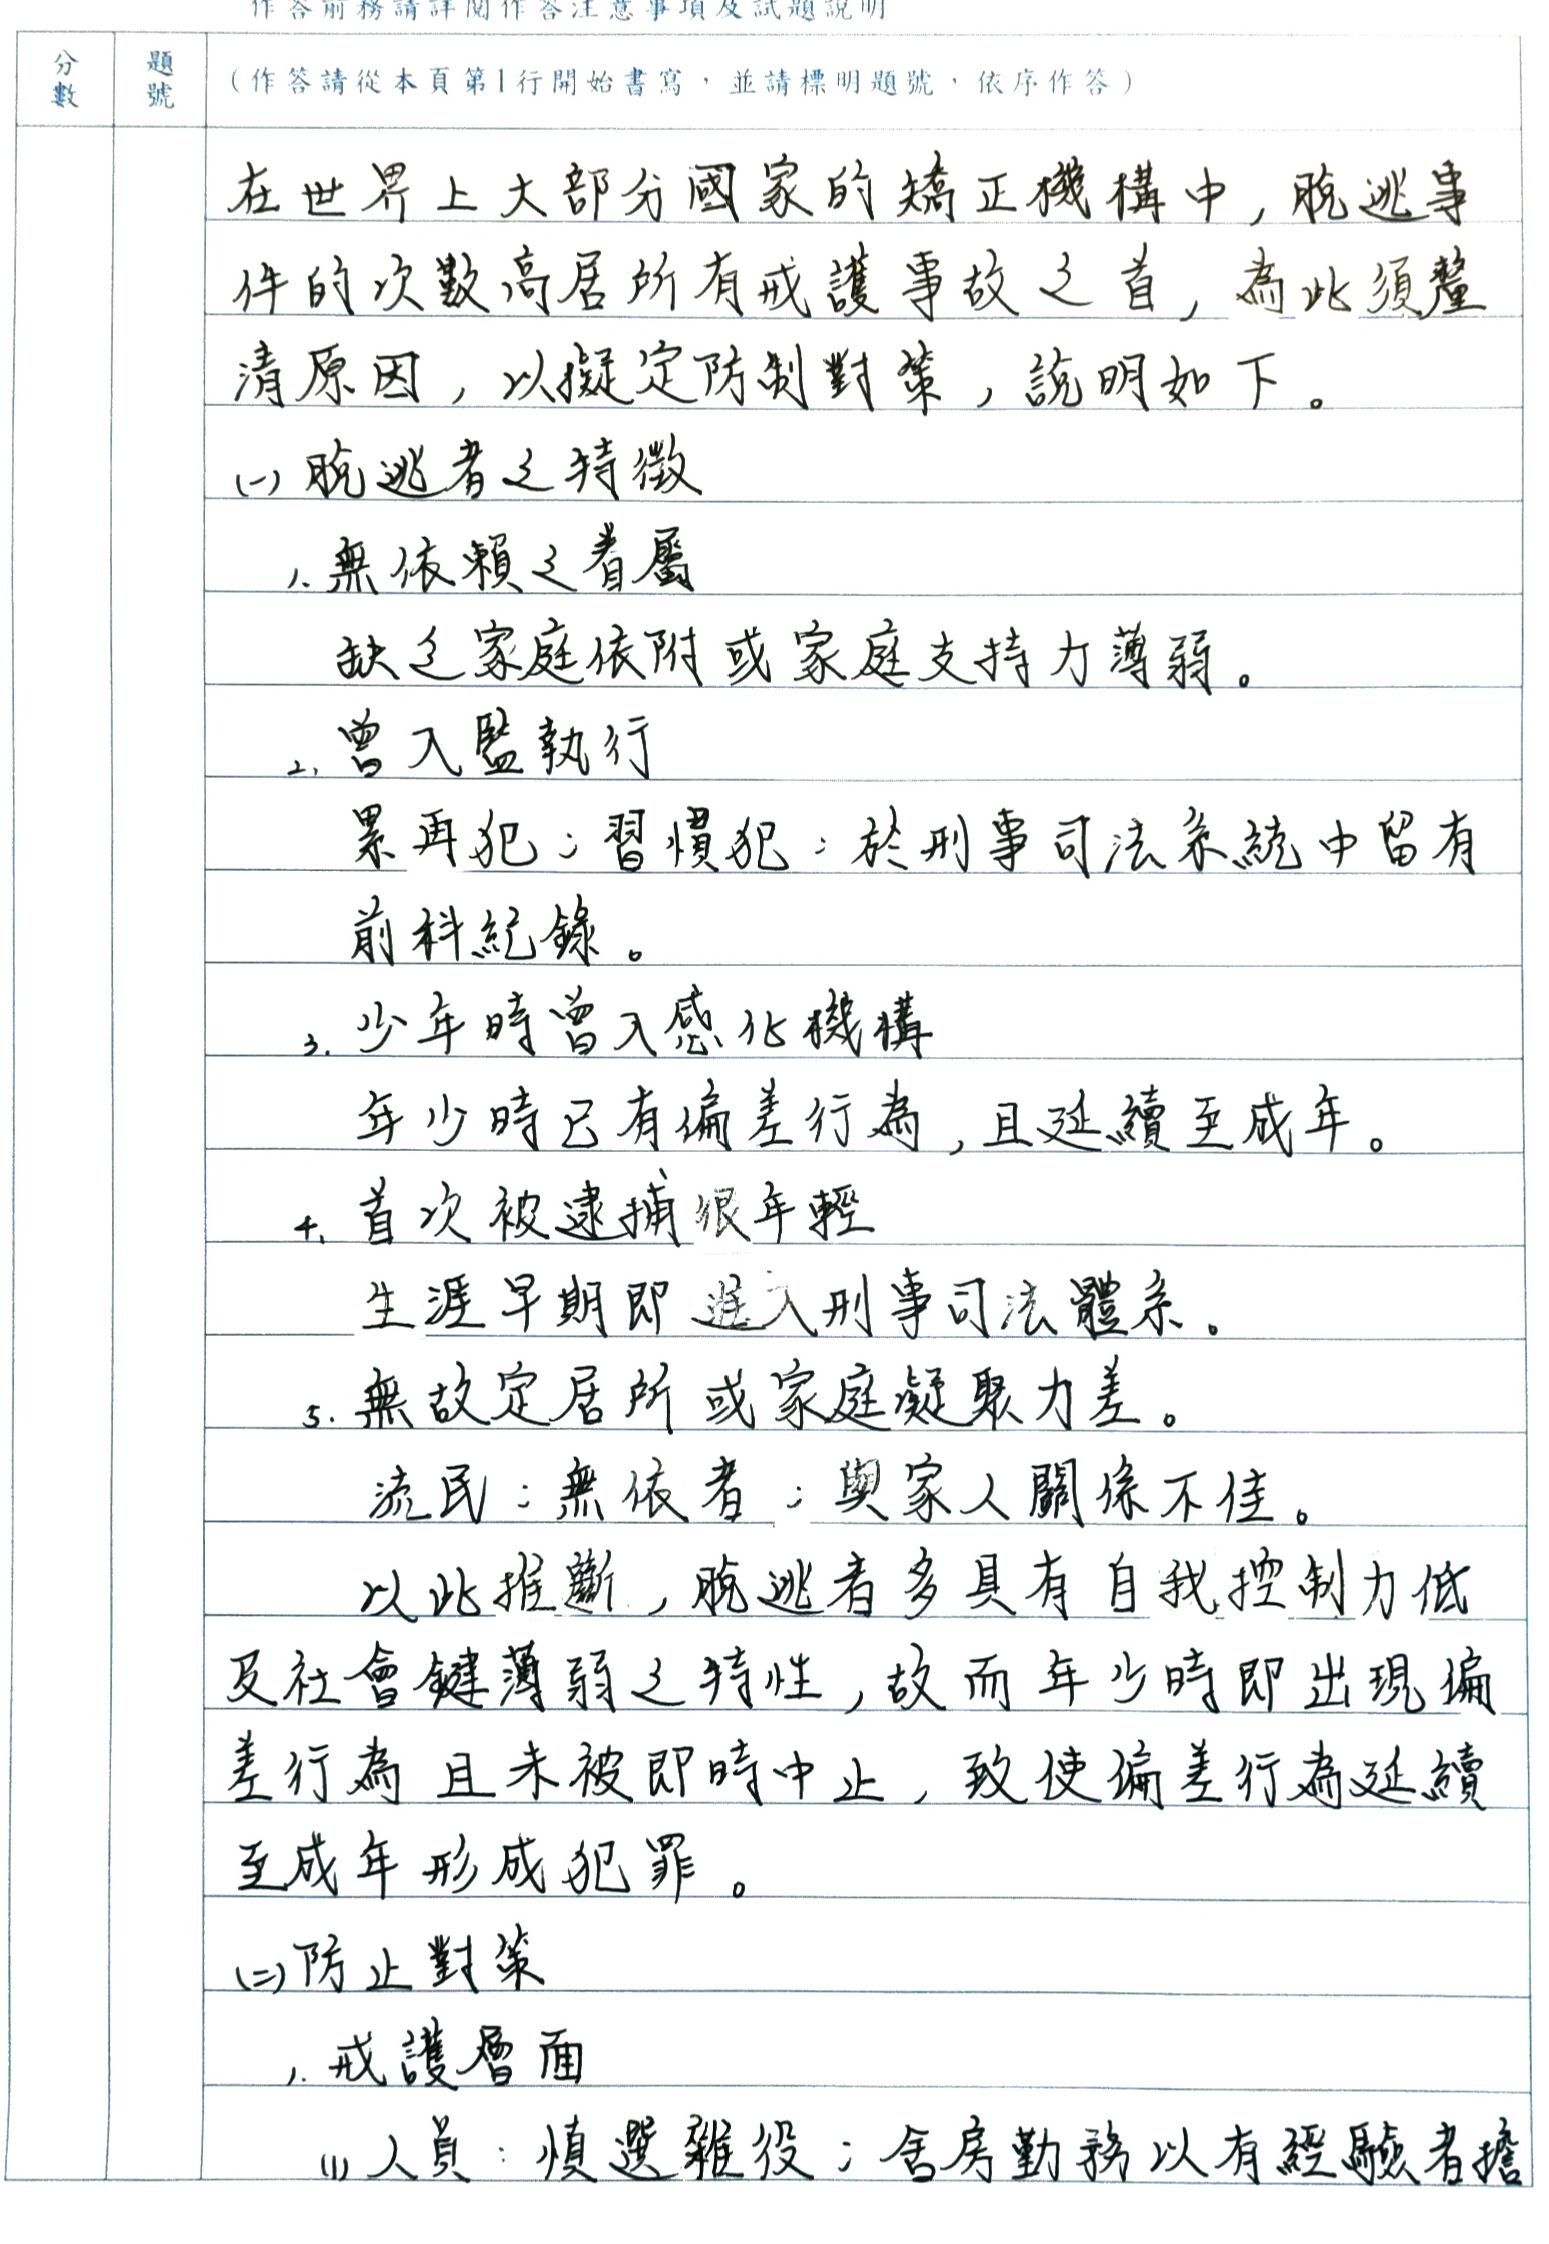 作答前務請詳閱作答注意事項及試題說明
分數
題號
(作答請從本頁第1行開始書寫，並請標明題號，依序作答)
在世界上大部分國家的矯正機構中，脫逃事
件的次數高居所有戒護事故之首，為此須釐
清原因，以擬定防制對策，說明如下。
(一)脫逃者之特徵
1.無依賴之眷屬
缺乏家庭依附或家庭支持力薄弱。
2.曾入監執行
累再犯；習慣犯；於刑事司法系統中留有
前科紀錄。
3.少年時曾入感化機構
年少時已有偏差行為，且延續至成年。
4.首次被逮捕很年輕
生涯早期即進入刑事司法體系。
5.無故定居所或家庭凝聚力差。
流民；無依者；與家人關係不佳。
以此推斷，脫逃者多具有自我控制力低
及社會鍵薄弱之特性，故而年少時即出現偏
差行為且未被即時中止，致使偏差行為延續
至成年形成犯罪。
(二)防止對策
1.戒護層面
(1)人員：慎選雜役；舍房勤務以有經驗者擔